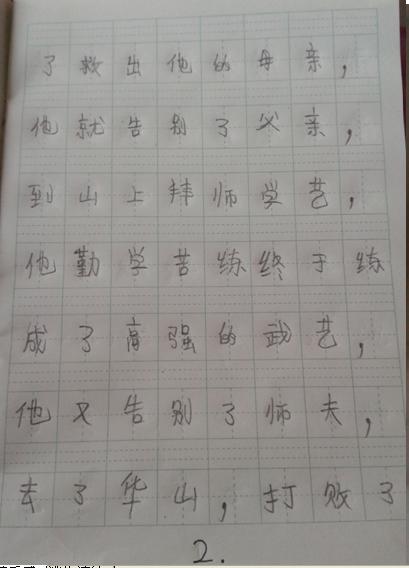 了救出他的母亲，
他就告别了父亲，
到山上拜师学艺，
他勤学苦练终于练
成了高强的武艺，
他又告别了师夫，
去了华山，打败了
2.